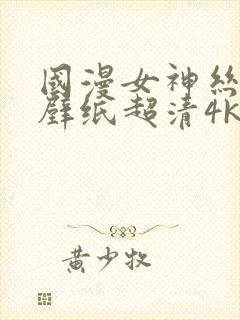 國漫女神絲
壁纸超清4K
黄少牧